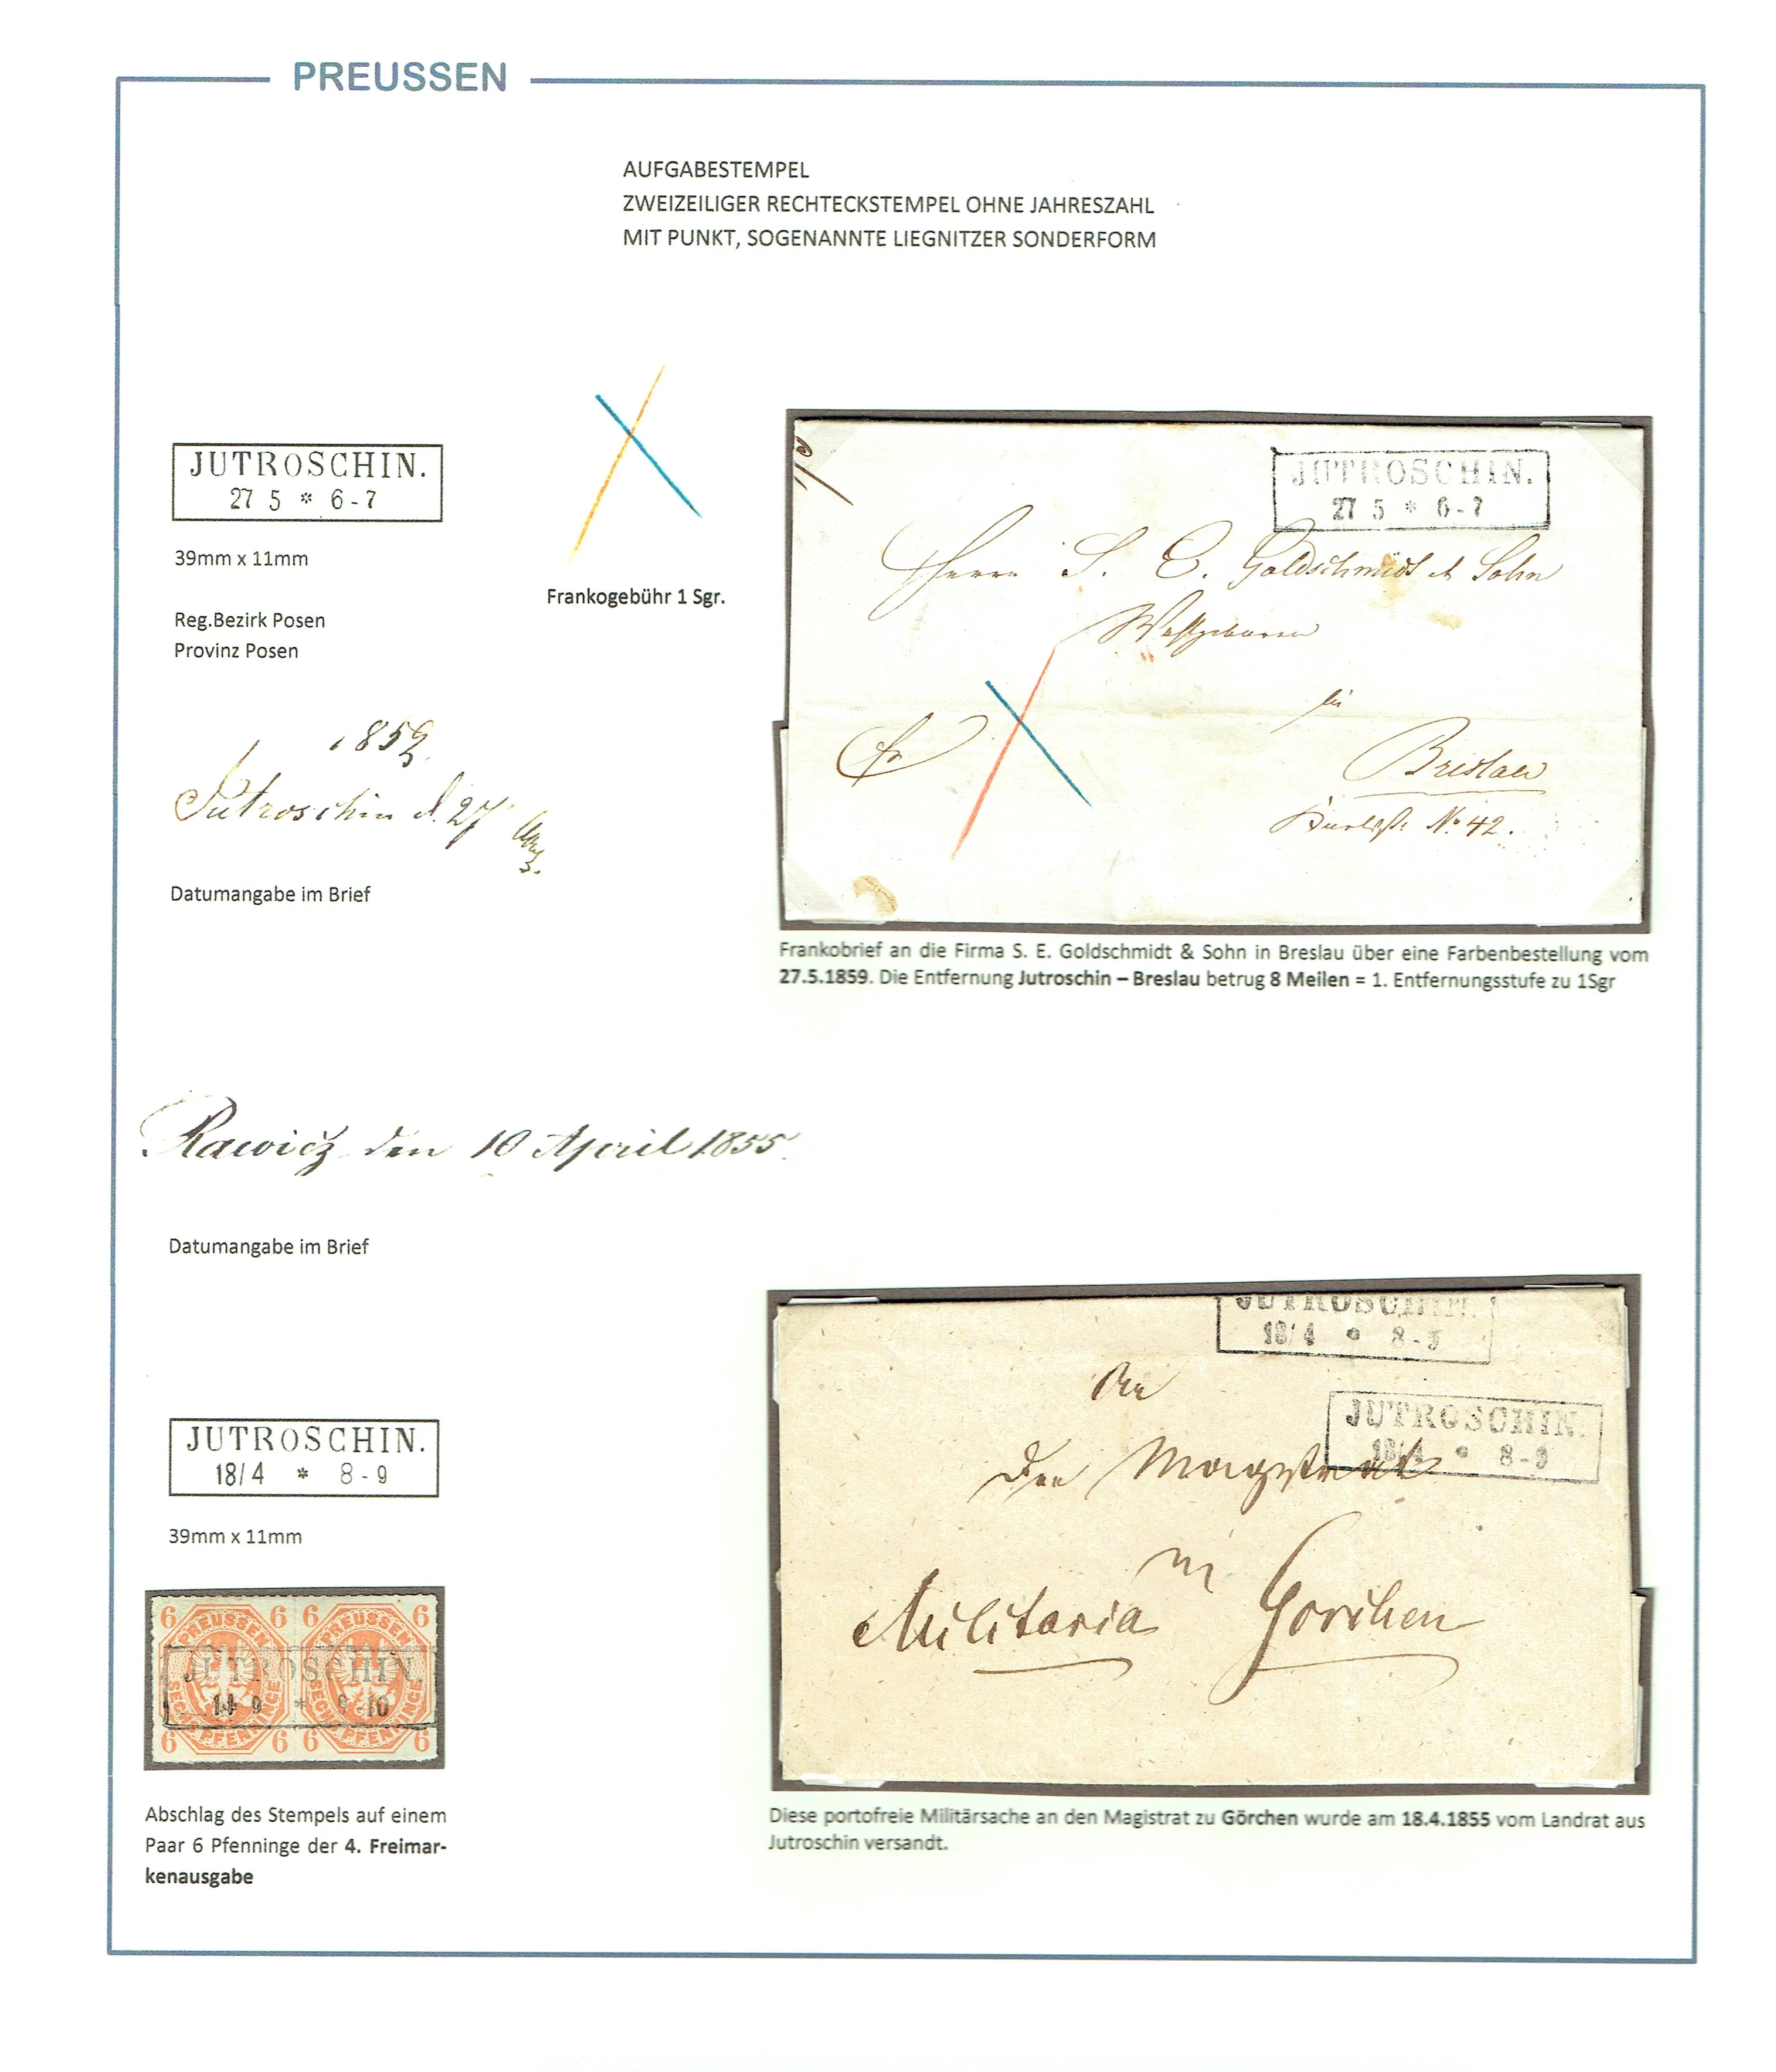 PREUSSEN
AUFGABESTEMPEL
ZWEIZEILIGER RECHTECKSTEMPEL OHNE JAHRESZAHL
MIT PUNKT, SOGENANNTE LIEGNITZER SONDERFORM
JUTROSCHIN.
27 5 * 6-7
39mm x 11mm
Reg.Bezirk Posen
Provinz Posen
Frankogebühr 1 Sgr.
1859.
Jutroschin d. 27
Datumangabe im Brief
JUTROSCHIN.
27 5 * 6-7
Herrn S. E. Goldschmidt & Sohn
Wohlgeboren
in
Breslau
No 42.
Frankobrief an die Firma S. E. Goldschmidt & Sohn in Breslau über eine Farbenbestellung vom
27.5.1859. Die Entfernung Jutroschin – Breslau betrug 8 Meilen = 1. Entfernungsstufe zu 1Sgr
Rawicz den 10 April 1855.
Datumangabe im Brief
JUTROSCHIN.
18/4 * 8-9
39mm x 11mm
6 6 6 6
PREUSSEN PREUSSEN
SECHS PFENNINGE SECHS PFENNINGE
JUTROSCHIN.
6 6 6 6
Abschlag des Stempels auf einem
Paar 6 Pfenninge der 4. Freimar-
kenausgabe
JUTROSCHIN.
18/4 * 8-9
JUTROSCHIN.
18/4 * 8-9
An
den Magistrat
in
Militaria Gorchen
Diese portofreie Militärsache an den Magistrat zu Görchen wurde am 18.4.1855 vom Landrat aus
Jutroschin versandt.